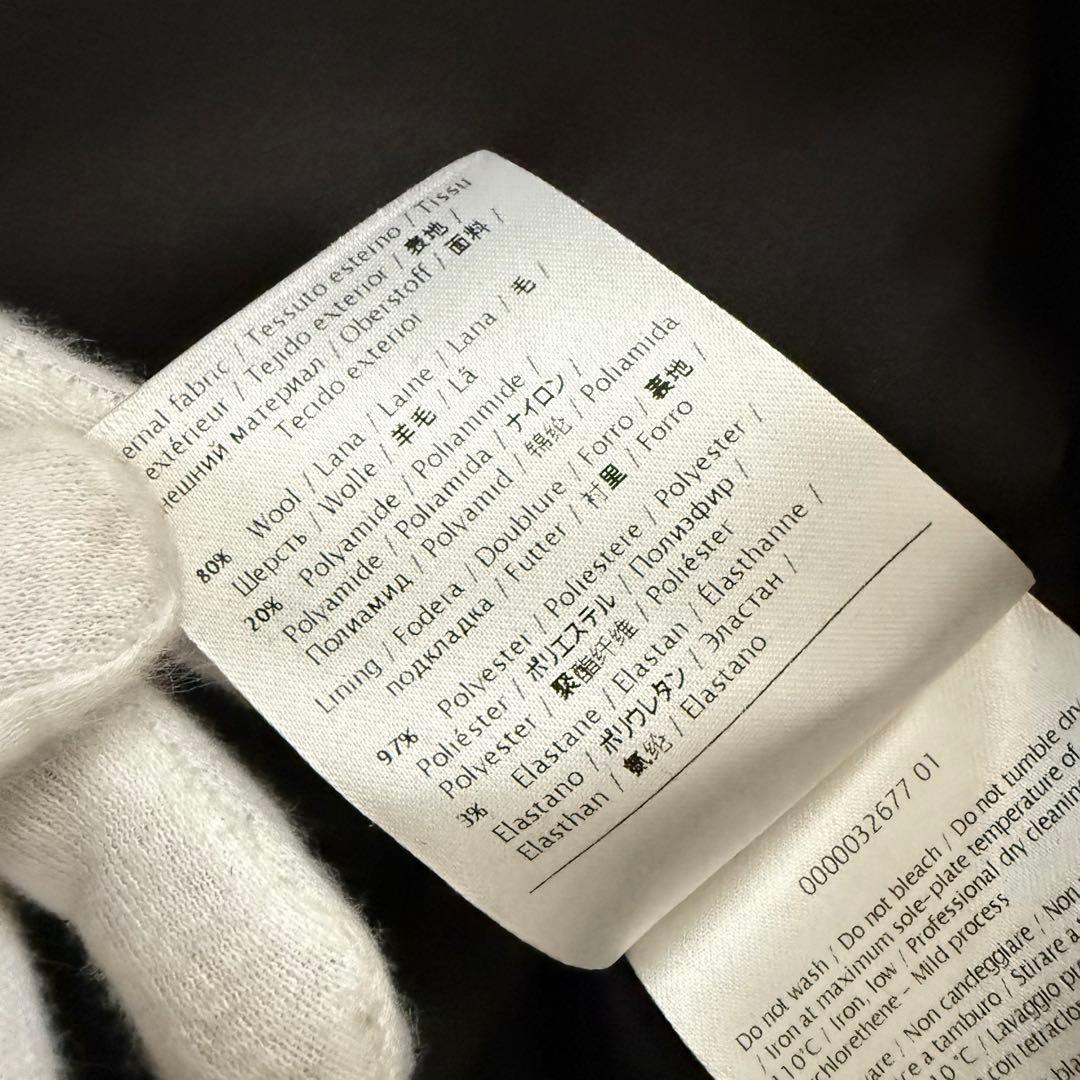 ernal fabric / Tessuto esterno / Tissu
extérieur / Tejido exterior / 表地 /
нешний материал / Oberstoff / 面料 /
Tecido exterior
80% Wool / Lana / Laine / Lana / 毛 /
Шерсть / Wolle / 羊毛 / Lã
20% Polyamide / Poliammide /
Polyamide / Poliamida / ナイロン /
Полиамид / Polyamid / 锦纶 / Poliamida
Lining / Fodera / Doublure / Forro / 裏地 /
подкладка / Futter / 衬里 / Forro
97% Polyester / Poliestere / Polyester /
Poliéster / ポリエステル / Полиэфир /
Polyester / 聚酯纤维 / Poliéster
3% Elastane / Elastan / Élasthanne /
Elastano / ポリウレタン / Эластан /
Elasthan / 氨纶 / Elastano
0000032677 01
Do not wash / Do not bleach / Do not tumble dry
/ Iron at maximum sole-plate temperature of
110°C / Iron, low / Professional dry cleaning
chlorethene - Mild process
are / Non candeggiare / Non
e a tamburo / Stirare a
10 °C / Lavaggio
con tetraclo